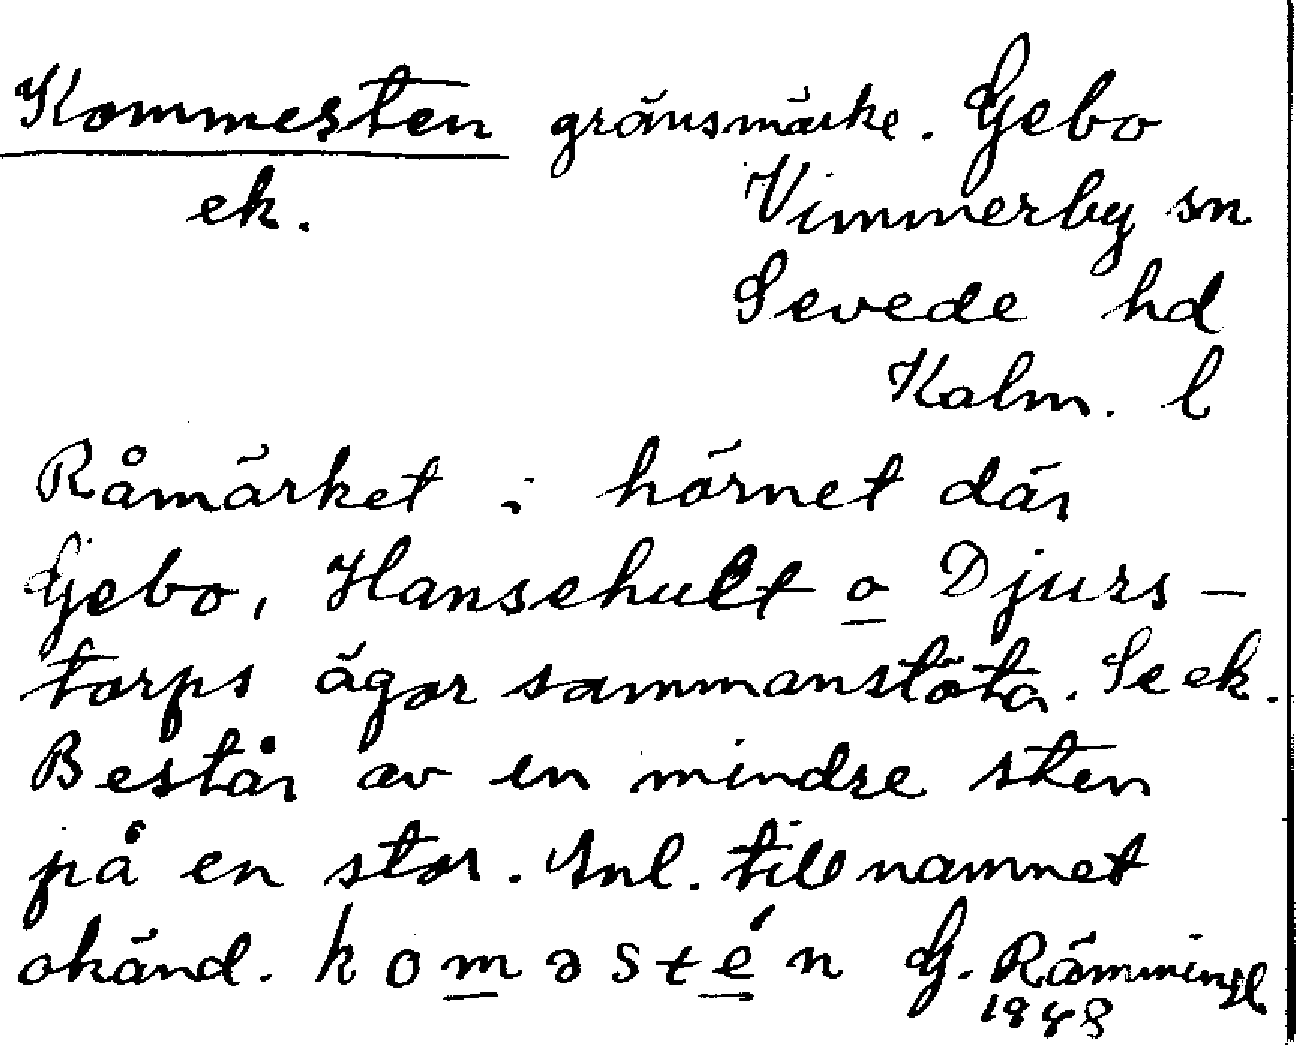 Kommesten gränsmärke. Gebo
ek. Vimmerby sn
Sevede hd
Kalm. l
Råmärket i hörnet där
Gebo, Hansehult o Djurs-
torps ägor sammanstöta. Se ek.
Består av en mindre sten
på en stor. Anl. till namnet
okänd. koməstén G.
1948